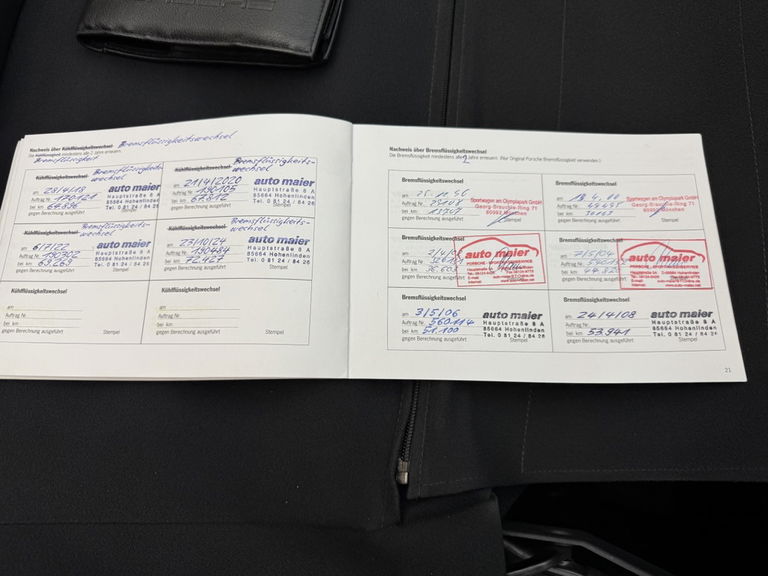 Nachweis über Bremsflüssigkeitswechsel
Die Kühlflüssigkeit mindestens alle 2 Jahre erneuern.
Bremsflüssigkeit
Kühlflüssigkeitswechsel
Bremsflüssigkeitswechsel
am 23/4/18
Auftrag Nr.
bei km
gegen Berechnung ausgeführt
auto maier
Hauptstraße 8 A
85664 Hohenlinden
Tel. 0 81 24 / 84 26
Stempel
Kühlflüssigkeitswechsel
Bremsflüssigkeits-
wechsel
am 21/4/2020
Auftrag Nr. 190105
bei km 67.812
gegen Berechnung ausgeführt
auto maier
Hauptstraße 8 A
85664 Hohenlinden
Tel. 0 81 24 / 84 26
Stempel
Kühlflüssigkeitswechsel
Bremsflüssigkeits-
wechsel
am 6/7/22
Auftrag Nr. 190302
bei km 69.263
gegen Berechnung ausgeführt
auto maier
Hauptstraße 8 A
85664 Hohenlinden
Tel. 0 81 24 / 84 26
Stempel
Kühlflüssigkeitswechsel
Bremsflüssigkeits-
wechsel
am 23/10/24
Auftrag Nr. 190484
bei km 72.427
gegen Berechnung ausgeführt
auto maier
Hauptstraße 8 A
85664 Hohenlinden
Tel. 0 81 24 / 84 26
Stempel
Kühlflüssigkeitswechsel
am
Auftrag Nr.
bei km
gegen Berechnung ausgeführt
Stempel
Kühlflüssigkeitswechsel
am
Auftrag Nr.
bei km
gegen Berechnung ausgeführt
Stempel
Nachweis über Bremsflüssigkeitswechsel
Die Bremsflüssigkeit mindestens alle 2 Jahre erneuern. (Nur Original Porsche Bremsflüssigkeit verwenden.)
Bremsflüssigkeitswechsel
am
Auftrag Nr.
bei km
gegen Berechnung ausgeführt
Sportwagen am Olympiapark GmbH
Georg-Brauchle-Ring 71
80992 München
Bremsflüssigkeitswechsel
am
Auftrag Nr.
bei km
gegen Berechnung ausgeführt
Sportwagen am Olympiapark GmbH
Georg-Brauchle-Ring 71
80992 München
Bremsflüssigkeitswechsel
am
Auftrag Nr.
bei km
gegen Berechnung ausgeführt
auto maier
Bremsflüssigkeitswechsel
am 7/5/04
Auftrag Nr.
bei km
gegen Berechnung ausgeführt
auto maier
Bremsflüssigkeitswechsel
am 3/5/06
Auftrag Nr. 560114
bei km
gegen Berechnung ausgeführt
auto maier
Hauptstraße 8 A
85664 Hohenlinden
Tel. 0 81 24 / 84 26
Stempel
Bremsflüssigkeitswechsel
am 24/4/08
Auftrag Nr.
bei km 53.941
gegen Berechnung ausgeführt
auto maier
Hauptstraße 8 A
85664 Hohenlinden
Tel. 0 81 24 / 84 26
Stempel
21